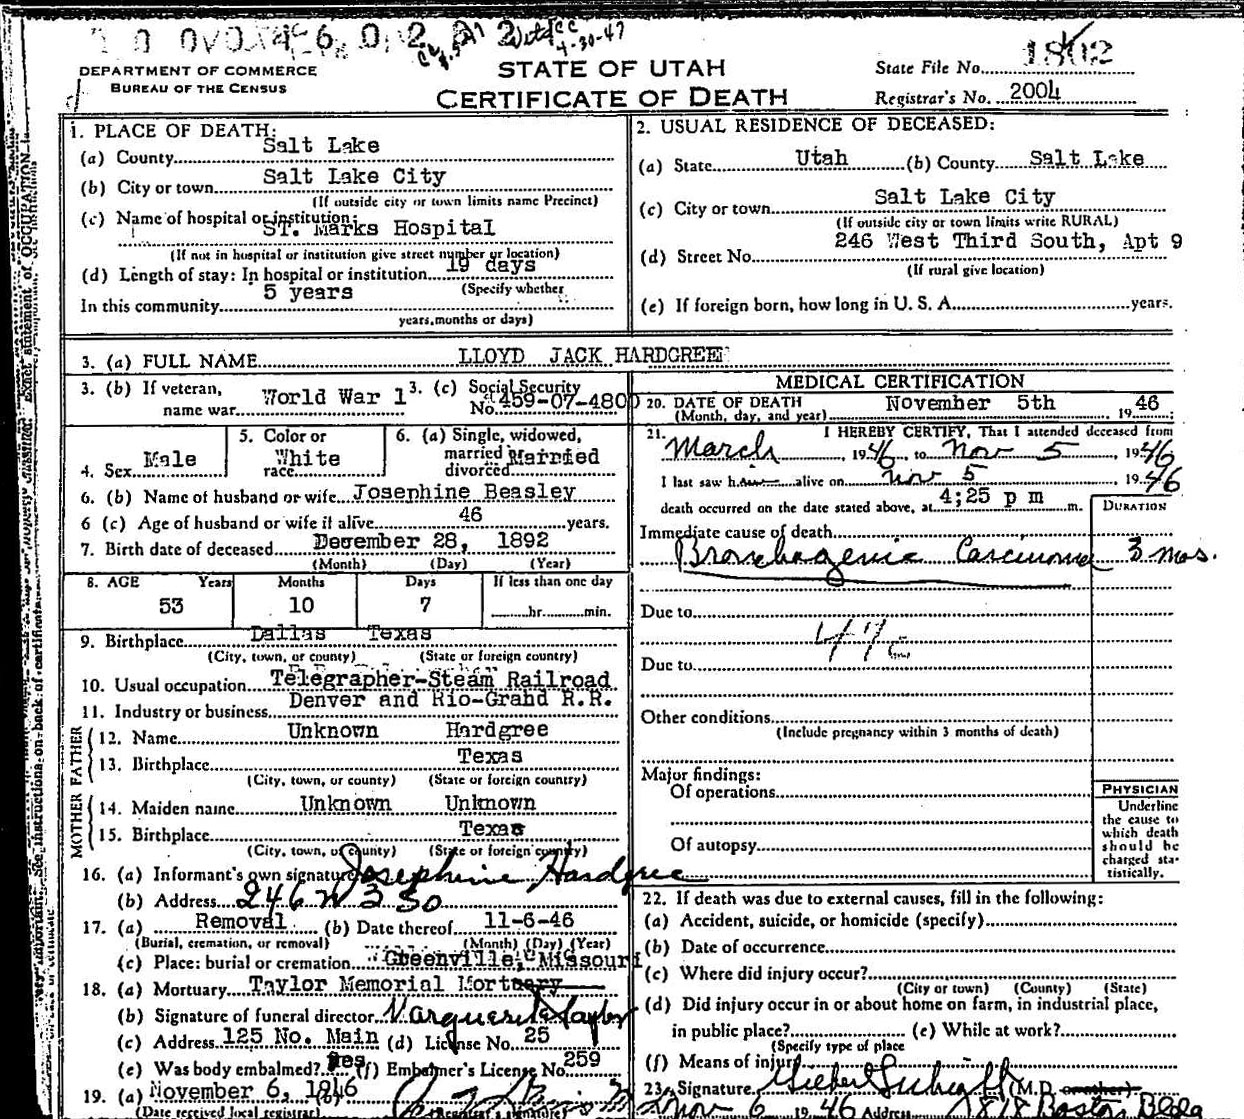 4-30-47
DEPARTMENT OF COMMERCE
BUREAU OF THE CENSUS
STATE OF UTAH
CERTIFICATE OF DEATH
State File No. 1802
Registrar's No. 2004
1. PLACE OF DEATH:
(a) County Salt Lake
(b) City or town Salt Lake City
(If outside city or town limits name Precinct)
(c) Name of hospital or institution:
ST. Marks Hospital
(If not in hospital or institution give street number or location)
(d) Length of stay: In hospital or institution 19 days
(Specify whether
In this community 5 years
years, months or days)
2. USUAL RESIDENCE OF DECEASED:
(a) State Utah (b) County Salt Lake
(c) City or town Salt Lake City
(If outside city or town limits write RURAL)
(d) Street No. 246 West Third South, Apt 9
(If rural give location)
(e) If foreign born, how long in U. S. A. years.
3. (a) FULL NAME LLOYD JACK HARDGREE
3. (b) If veteran, name war World War 1
3. (c) Social Security No. 459-07-4800
4. Sex Male
5. Color or race White
6. (a) Single, widowed, married divorced Married
6. (b) Name of husband or wife Josephine Beasley
6 (c) Age of husband or wife if alive 46 years.
7. Birth date of deceased December 28, 1892
(Month) (Day) (Year)
8. AGE Years Months Days If less than one day
53 10 7 hr. min.
9. Birthplace Dallas Texas
(City, town, or county) (State or foreign country)
10. Usual occupation Telegrapher-Steam Railroad
11. Industry or business Denver and Rio-Grand R.R.
FATHER
12. Name Unknown Hardgree
13. Birthplace Texas
(City, town, or county) (State or foreign country)
MOTHER
14. Maiden name Unknown Unknown
15. Birthplace Texas
(City, town, or county) (State or foreign country)
16. (a) Informant's own signature Josephine Hardgree
(b) Address 246 W 3 So
17. (a) Removal (b) Date thereof 11-6-46
(Burial, cremation, or removal) (Month) (Day) (Year)
(c) Place: burial or cremation Greenville, Missouri
18. (a) Mortuary Taylor Memorial Mortuary
(b) Signature of funeral director Marguerite Taylor
(c) Address 125 No. Main (d) License No. 25
(e) Was body embalmed? yes (f) Embalmer's License No. 259
19. (a) November 6, 1946 (b)
(Date received local registrar) (Registrar's signature)
MEDICAL CERTIFICATION
20. DATE OF DEATH November 5th 1946;
(Month, day, and year)
21. I HEREBY CERTIFY, That I attended deceased from
March, 1946, to Nov 5, 1946
I last saw him alive on Nov 5, 1946
death occurred on the date stated above, at 4;25 p m m.
DURATION
Immediate cause of death
Bronchogenic Carcinoma 3 mos.
Due to
Due to
Other conditions
(Include pregnancy within 3 months of death)
Major findings:
Of operations
Of autopsy
PHYSICIAN
Underline
the cause to
which death
should be
charged sta-
tistically.
22. If death was due to external causes, fill in the following:
(a) Accident, suicide, or homicide (specify)
(b) Date of occurrence
(c) Where did injury occur?
(City or town) (County) (State)
(d) Did injury occur in or about home on farm, in industrial place,
in public place? (e) While at work?
(Specify type of place
(f) Means of injury
23. Signature (M.D. or other)
Nov 6 1946 Address Boston Bldg